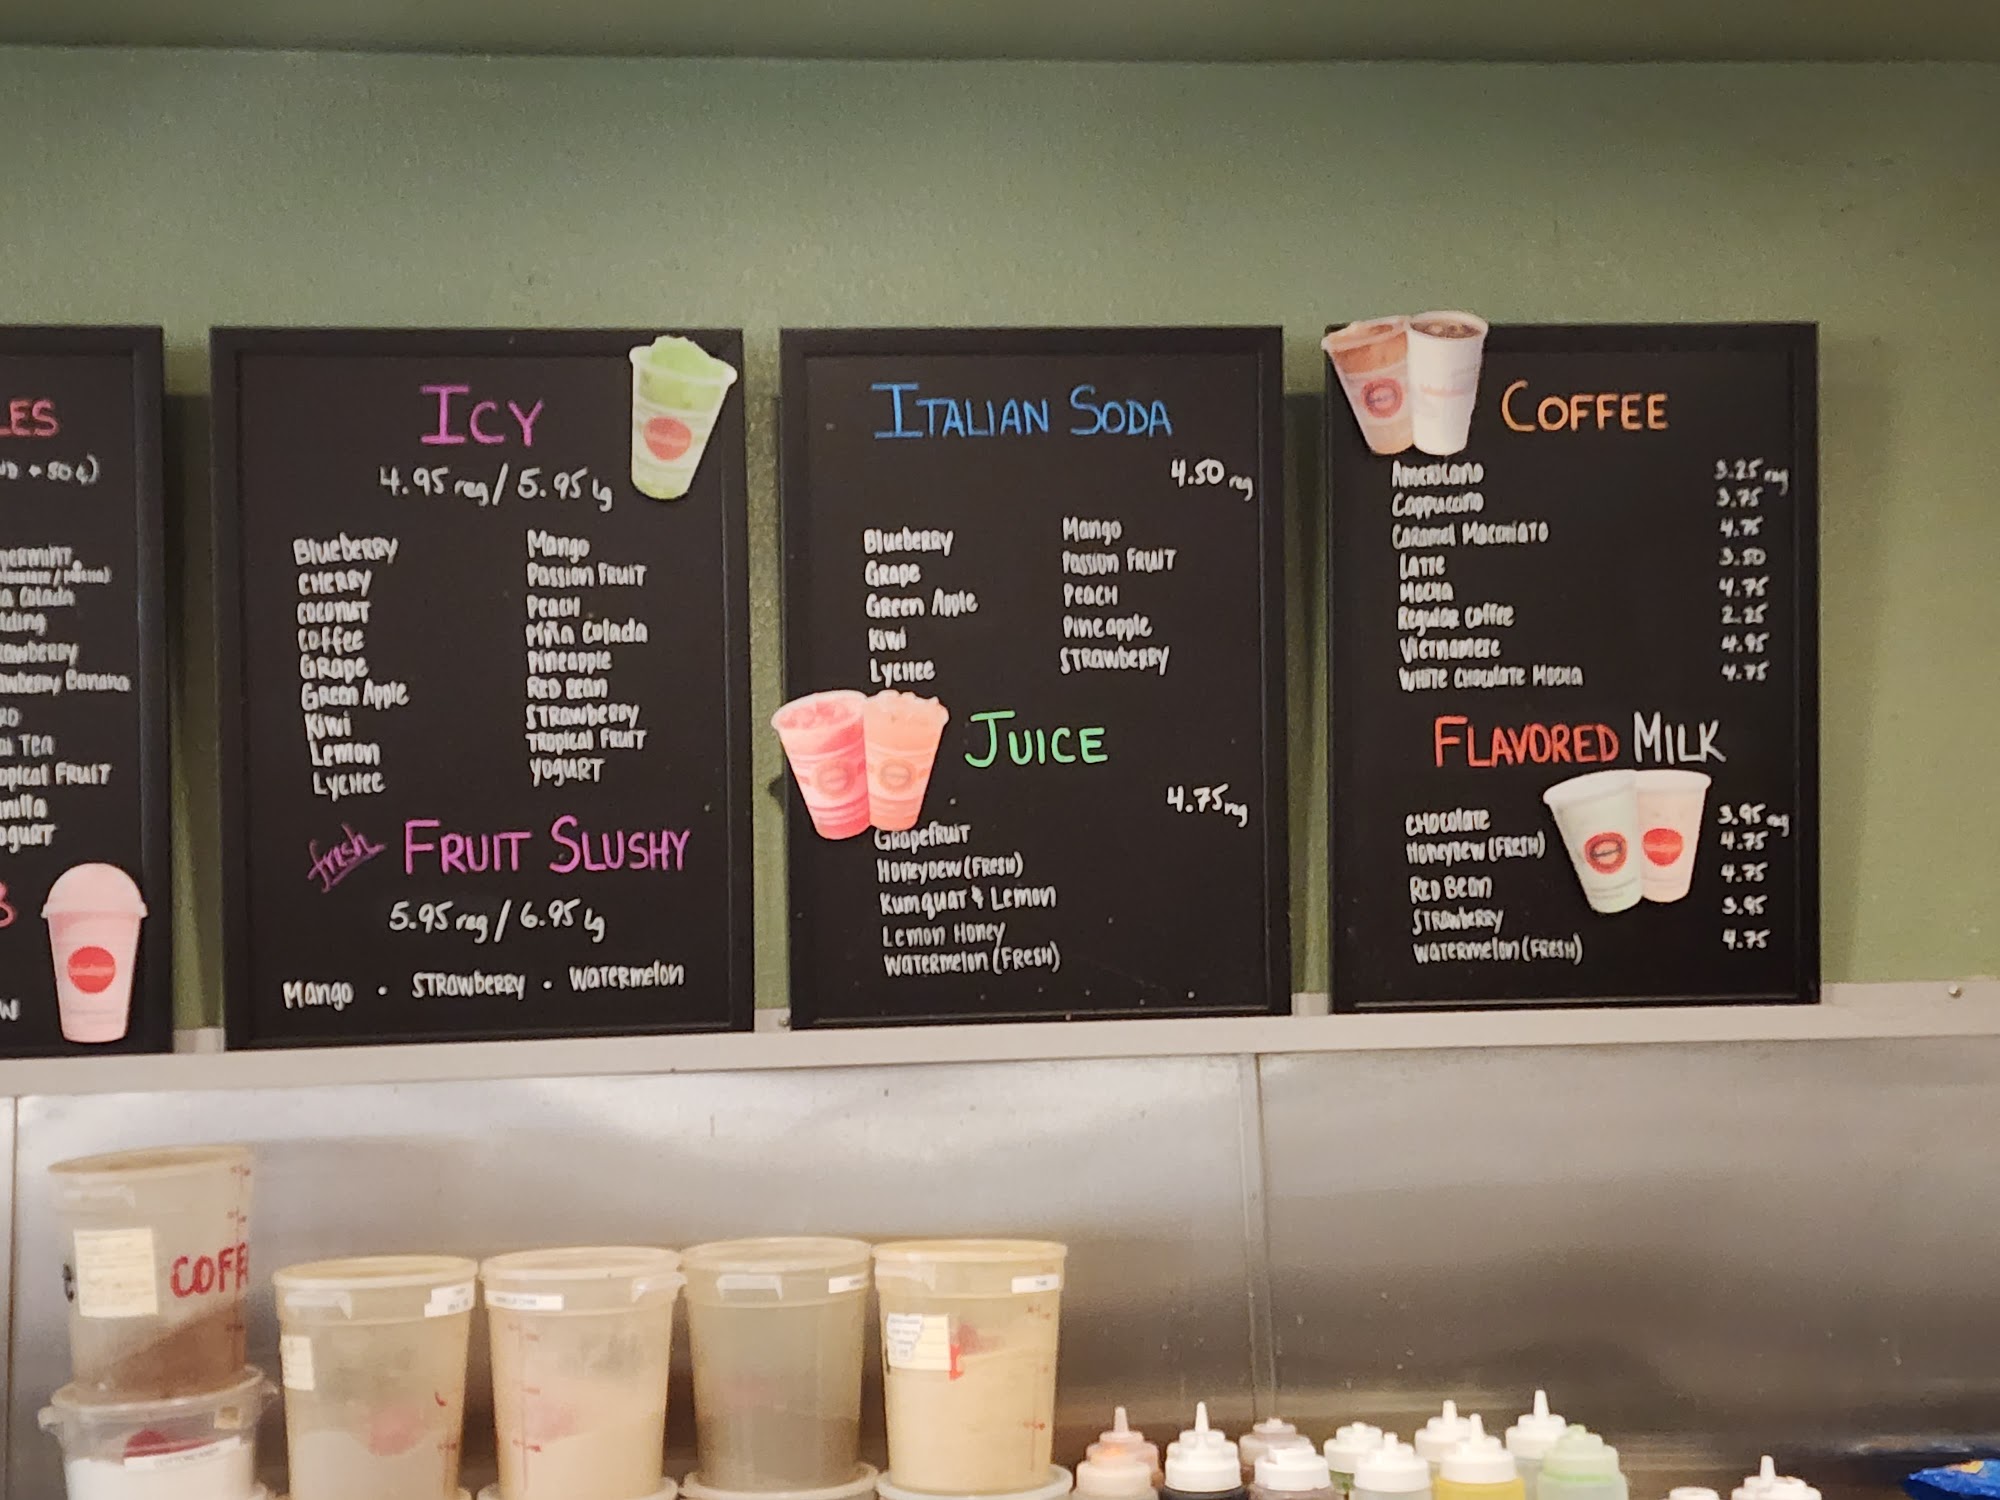 LES
+ 50¢)
a Colada
awberry
awberry Banana
Tea
opical Fruit
anilla
ogurt
Icy
4.95 reg / 5.95 lg
Blueberry
Cherry
Coconut
Coffee
Grape
Green Apple
Kiwi
Lemon
Lychee
Mango
Passion Fruit
Peach
Piña Colada
Pineapple
Red Bean
Strawberry
Tropical Fruit
Yogurt
fresh Fruit Slushy
5.95 reg / 6.95 lg
Mango • Strawberry • Watermelon
Italian Soda
4.50 reg
Blueberry
Grape
Green Apple
Kiwi
Lychee
Mango
Passion Fruit
Peach
Pineapple
Strawberry
Juice
4.75 reg
Grapefruit
Honeydew (Fresh)
Kumquat & Lemon
Lemon Honey
Watermelon (Fresh)
Coffee
Americano 3.25 reg
Cappuccino 3.75
Caramel Macchiato 4.75
Latte 3.50
Mocha 4.75
Regular Coffee 2.25
Vietnamese 4.95
White Chocolate Mocha 4.75
Flavored Milk
Chocolate 3.95 reg
Honeydew (Fresh) 4.75
Red Bean 4.75
Strawberry 3.95
Watermelon (Fresh) 4.75
COFF